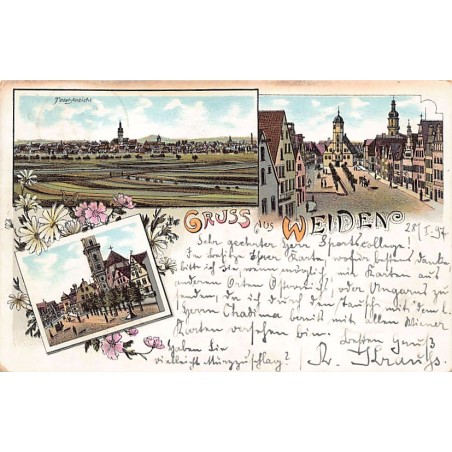 Total-Ansicht
GRUSS AUS WEIDEN
28/I. 97
Sehr geehrter Herr Sportkollege!
Im Besitze Ihrer Karten, wofür besten Danke,
bitte ich Sie, wenn möglich mit Karten aus
anderen Orten Österreichs oder Ungarns zu
senden, da ich durch den Tausch mit dem
Herrn Chadima bereits mit allen Wiener
Karten versehen bin. Besten Gruß
Haben Sie
vielleicht Mürzzuschlag? R. Strauß